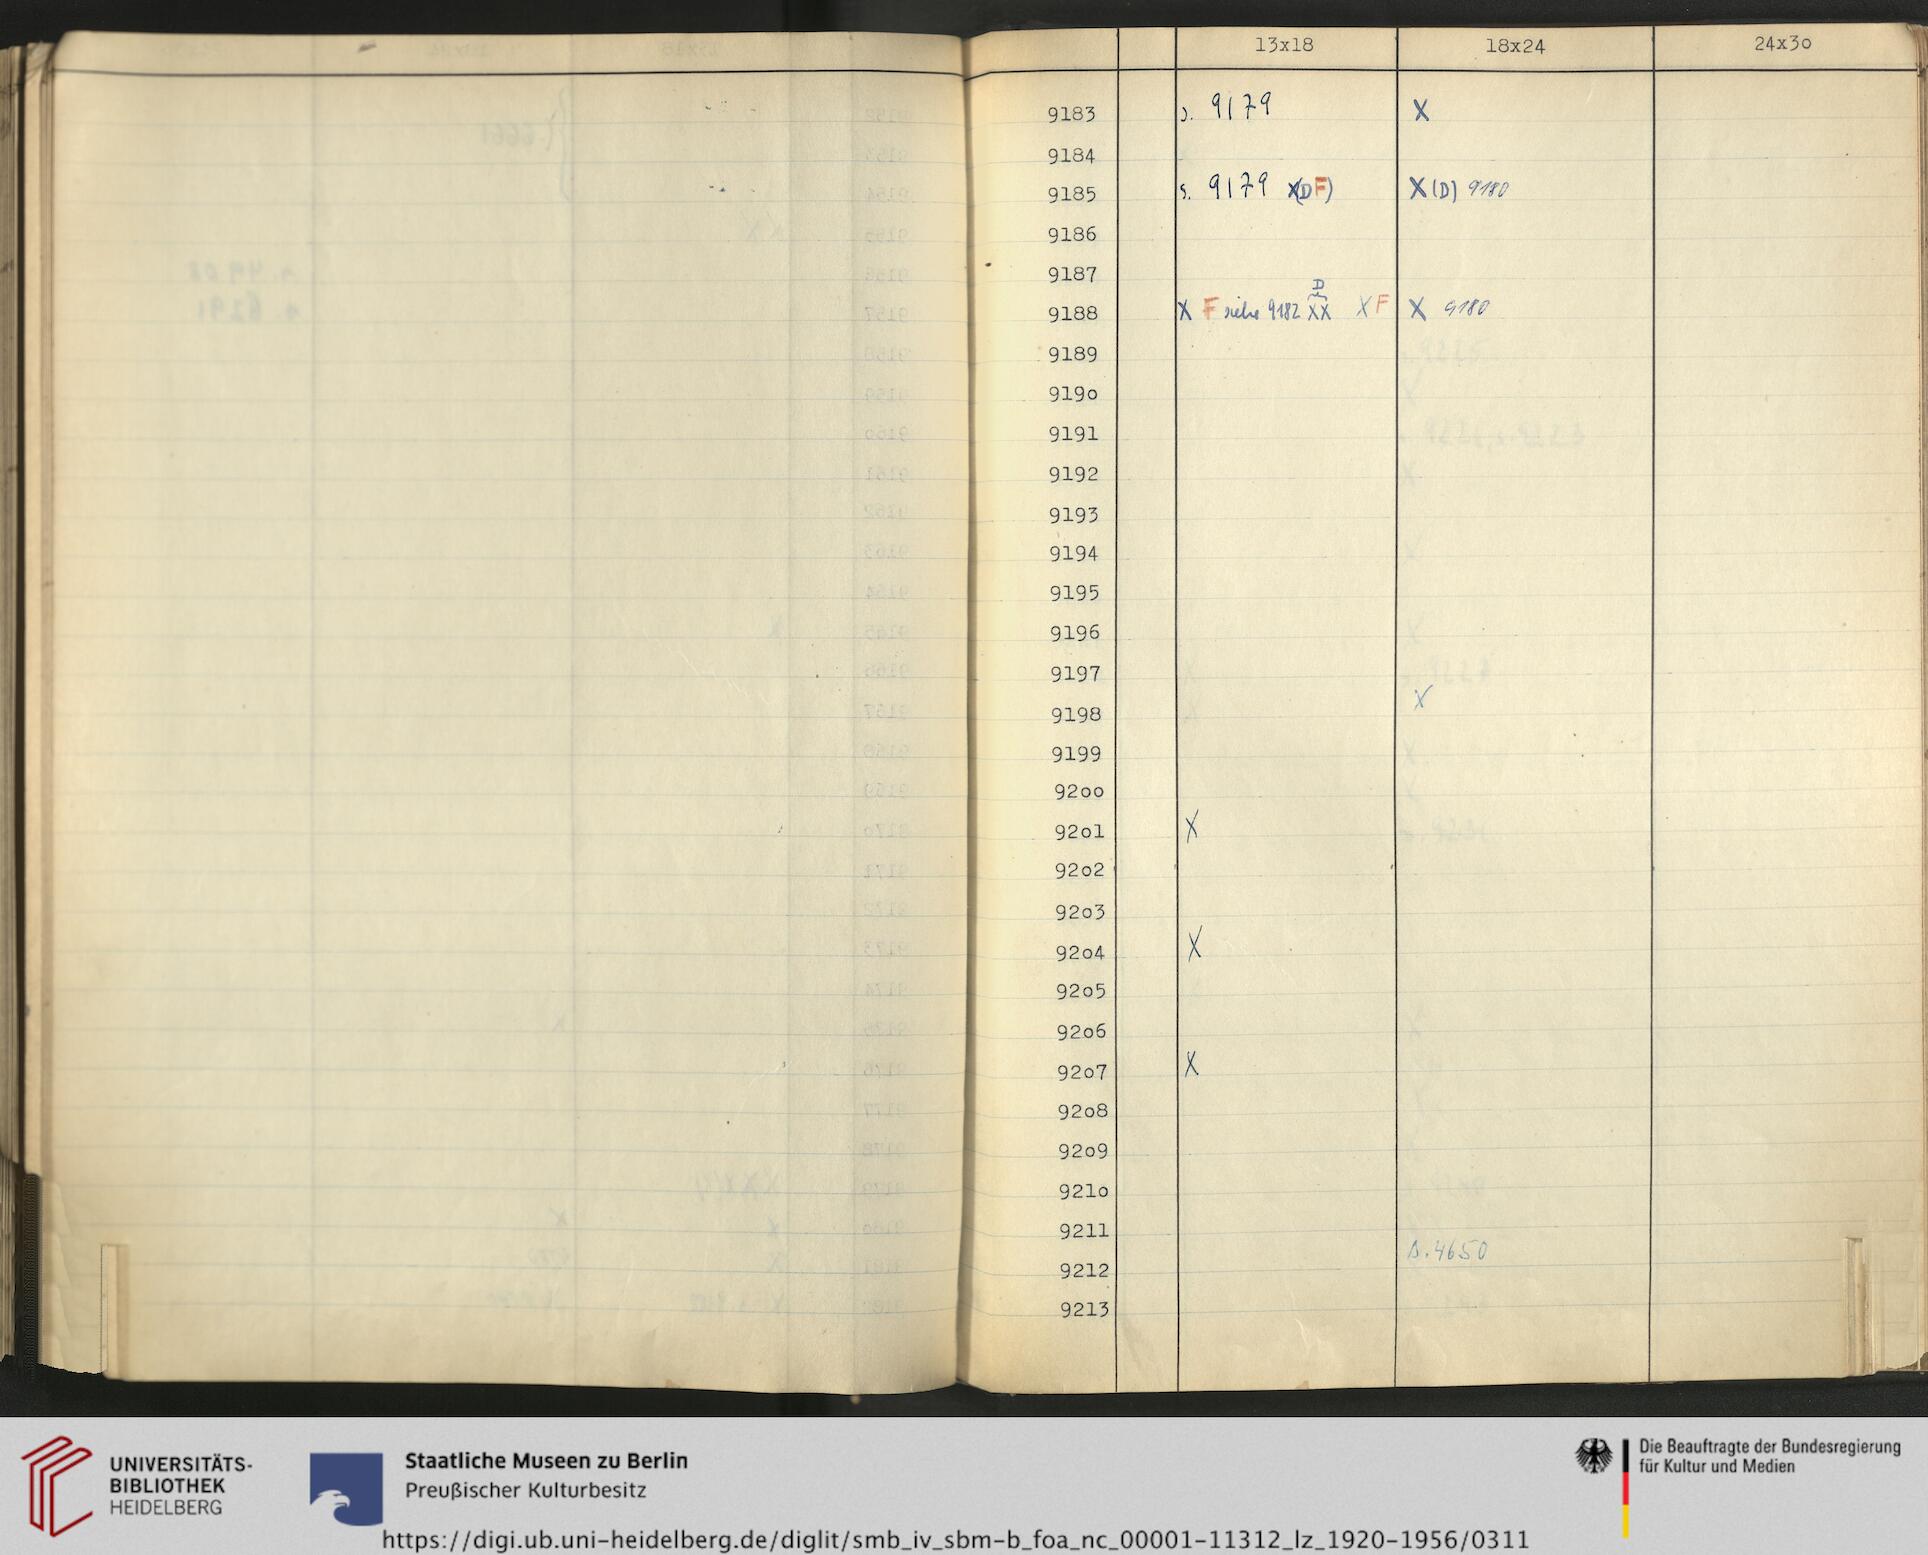 13x18 18x24 24x3o
9183 s. 9179 X
9184
9185 s. 9179 X(DF) X(D) 9180
9186
9187
D
9188 X F siehe 9182 XX XF X 9180
9189
919o
9191
9192
9193
9194
9195
9196
9197
9198 X
9199
92oo
92o1 X
92o2
92o3
92o4 X
92o5
92o6
92o7 X
92o8
92o9
921o
9211
9212 s. 4650
9213
UNIVERSITÄTS-
BIBLIOTHEK
HEIDELBERG
Staatliche Museen zu Berlin
Preußischer Kulturbesitz
Die Beauftragte der Bundesregierung
für Kultur und Medien
https://digi.ub.uni-heidelberg.de/diglit/smb_iv_sbm-b_foa_nc_00001-11312_lz_1920-1956/0311